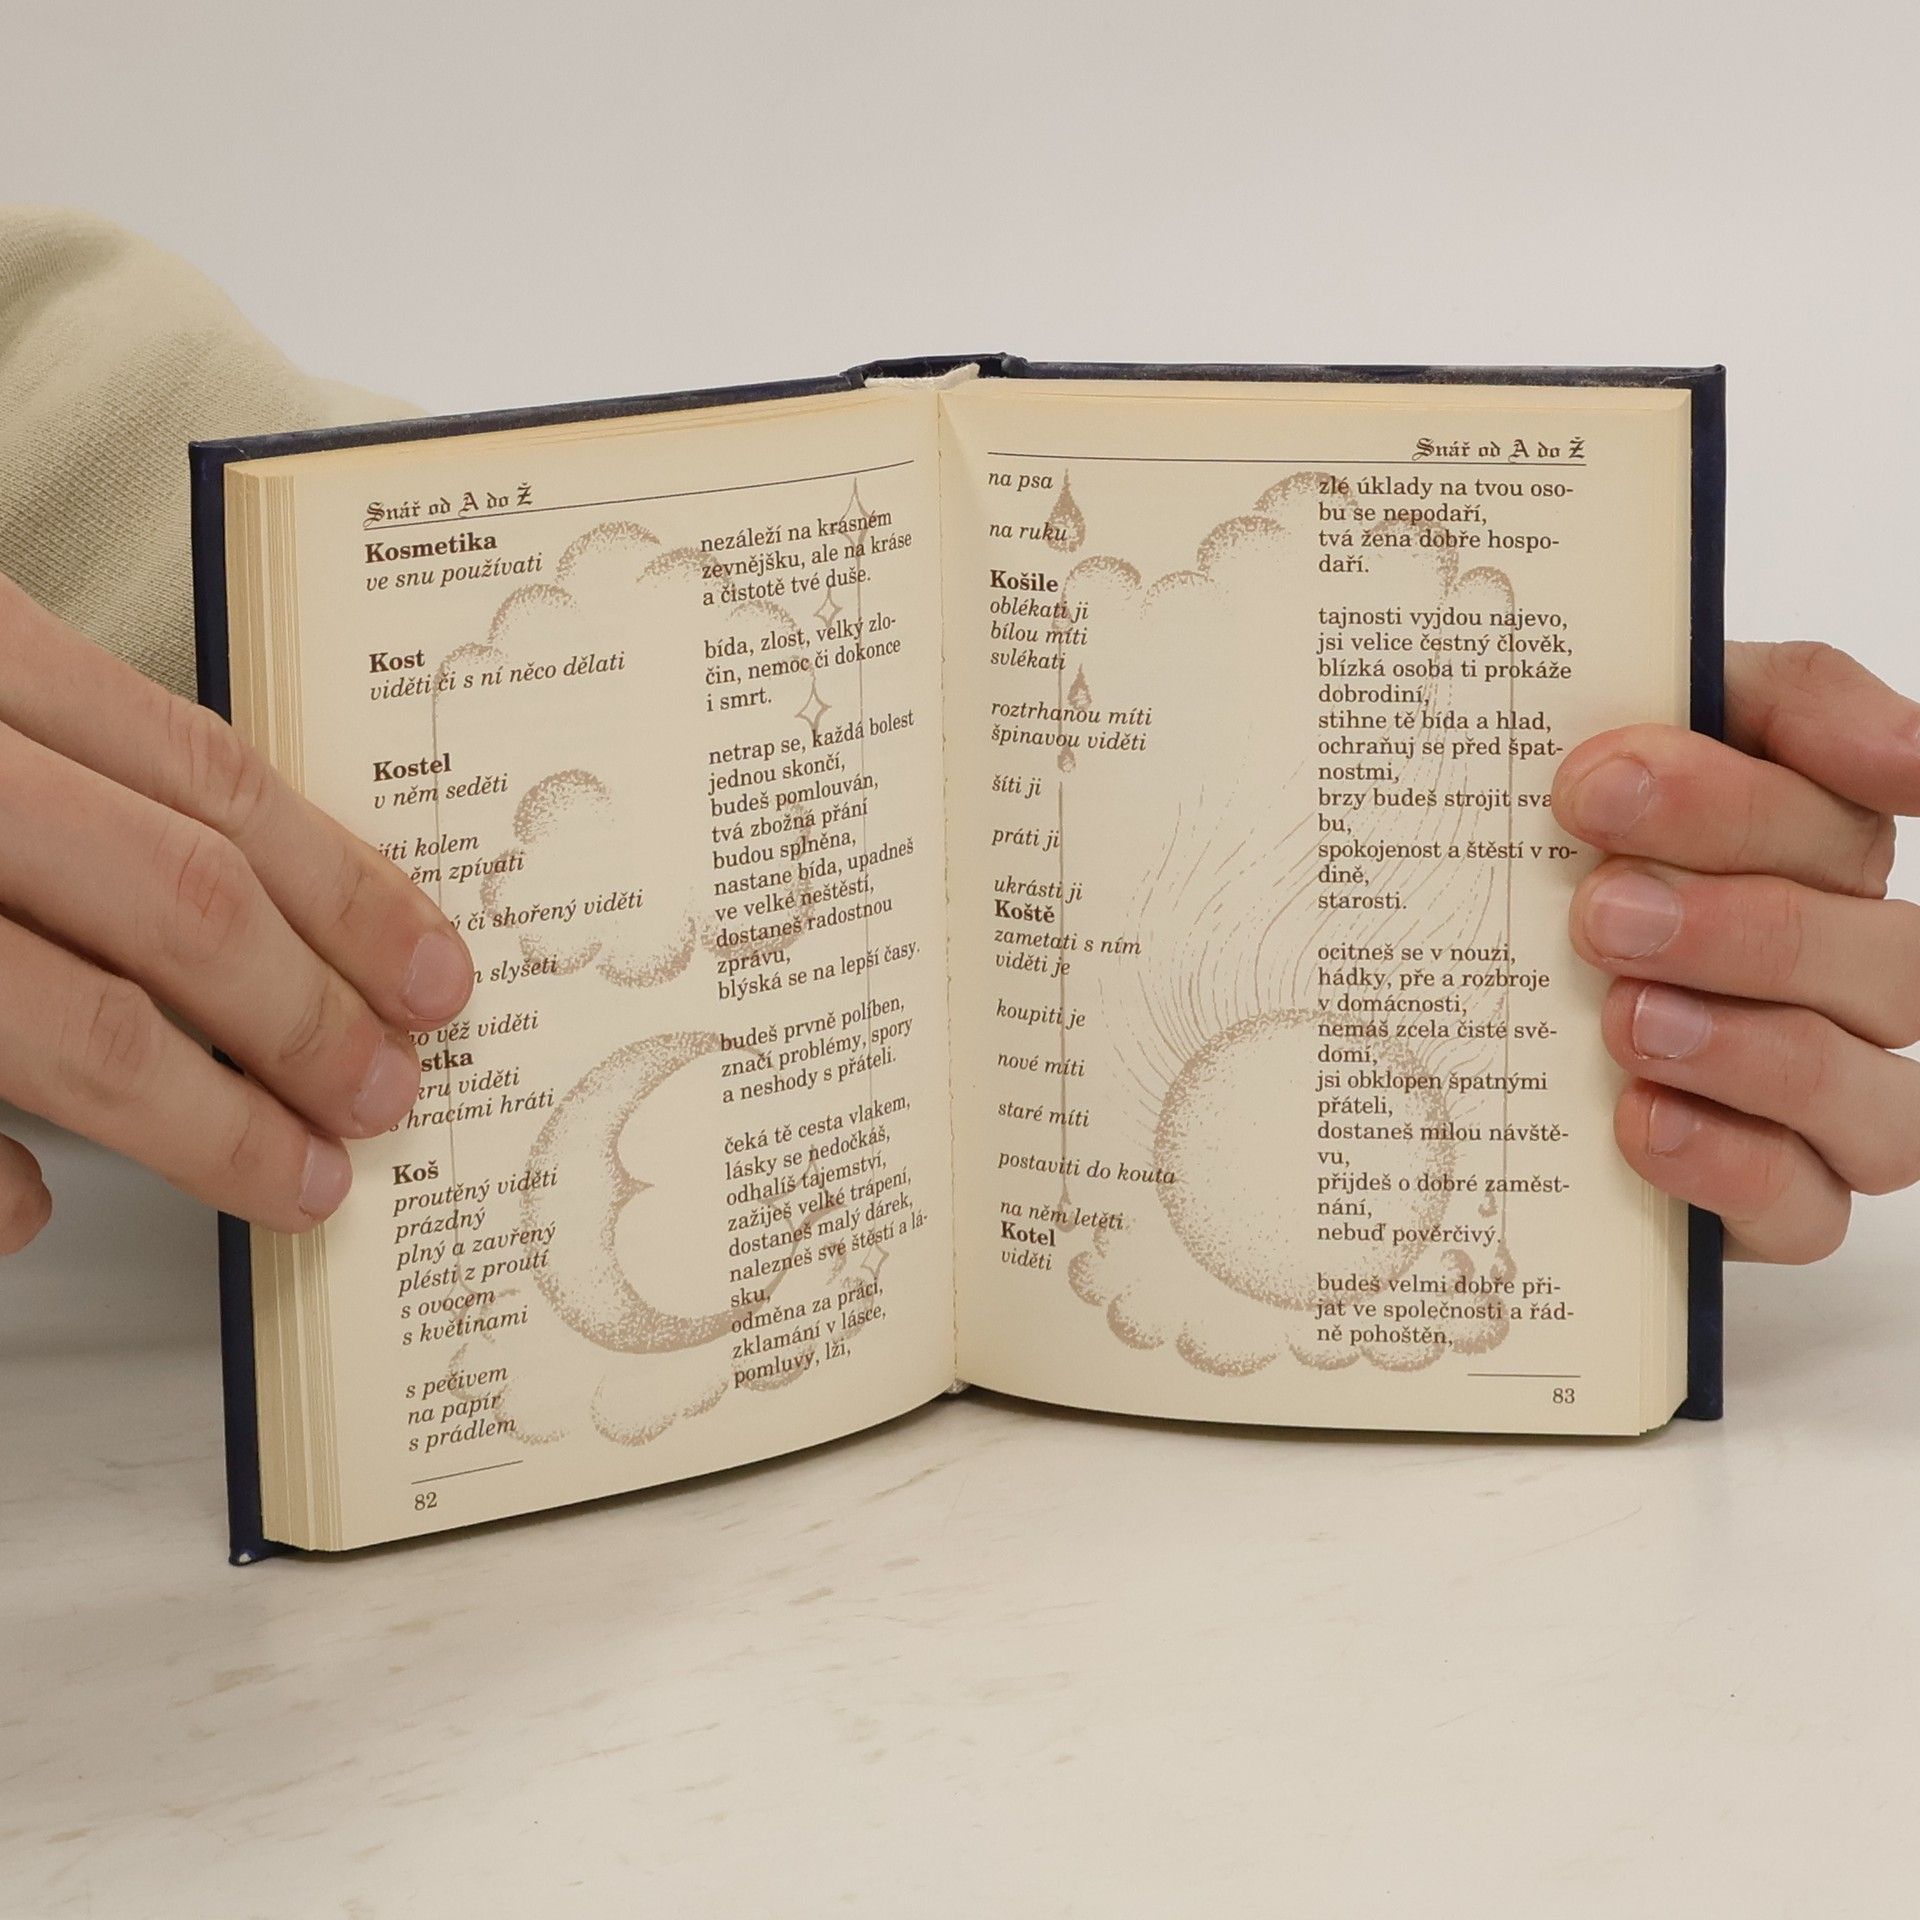 Snář od A do Ž
Kosmetika
ve snu používati
nezáleží na krásném
zevnějšku, ale na kráse
a čistotě tvé duše.
Kost
viděti či s ní něco dělati
bída, zlost, velký zlo-
čin, nemoc či dokonce
i smrt.
Kostel
v něm seděti
jíti kolem
zpívati
či shořený viděti
slyšeti
věž viděti
netrap se, každá bolest
jednou skončí,
budeš pomlouván,
tvá zbožná přání
budou splněna,
nastane bída, upadneš
ve velké neštěstí,
dostaneš radostnou
zprávu,
blýská se na lepší časy.
viděti
hracími hráti
budeš prvně políben,
značí problémy, spory
a neshody s přáteli.
Koš
proutěný viděti
prázdný
plný a zavřený
plésti z proutí
s ovocem
s květinami
s pečivem
na papír
s prádlem
čeká tě cesta vlakem,
lásky se nedočkáš,
odhalíš tajemství,
zažiješ velké trápení,
dostaneš malý dárek,
nalezneš své štěstí a lá-
sku,
odměna za práci,
zklamání v lásce,
pomluvy, lži,
82
Snář od A do Ž
na psa
na ruku
zlé úklady na tvou oso-
bu se nepodaří,
tvá žena dobře hospo-
daří.
Košile
oblékati ji
bílou míti
svlékati
roztrhanou míti
špinavou viděti
šíti ji
práti ji
ukrásti ji
tajnosti vyjdou najevo,
jsi velice čestný člověk,
blízká osoba ti prokáže
dobrodiní,
stihne tě bída a hlad,
ochraňuj se před špat-
nostmi,
brzy budeš strojit
bu,
spokojenost a štěstí v ro-
dině,
starosti.
Koště
zametati s ním
viděti je
koupiti je
nové míti
staré míti
postaviti do kouta
na něm letěti
ocitneš se v nouzi,
hádky, pře a rozbroje
v domácnosti,
nemáš zcela čisté svě-
domí,
jsi obklopen špatnými
přáteli,
dostaneš milou návště-
vu,
přijdeš o dobré zaměst-
nání,
nebuď pověrčivý.
Kotel
viděti
budeš velmi dobře při-
jat ve společnosti a řád-
ně pohoštěn,
83